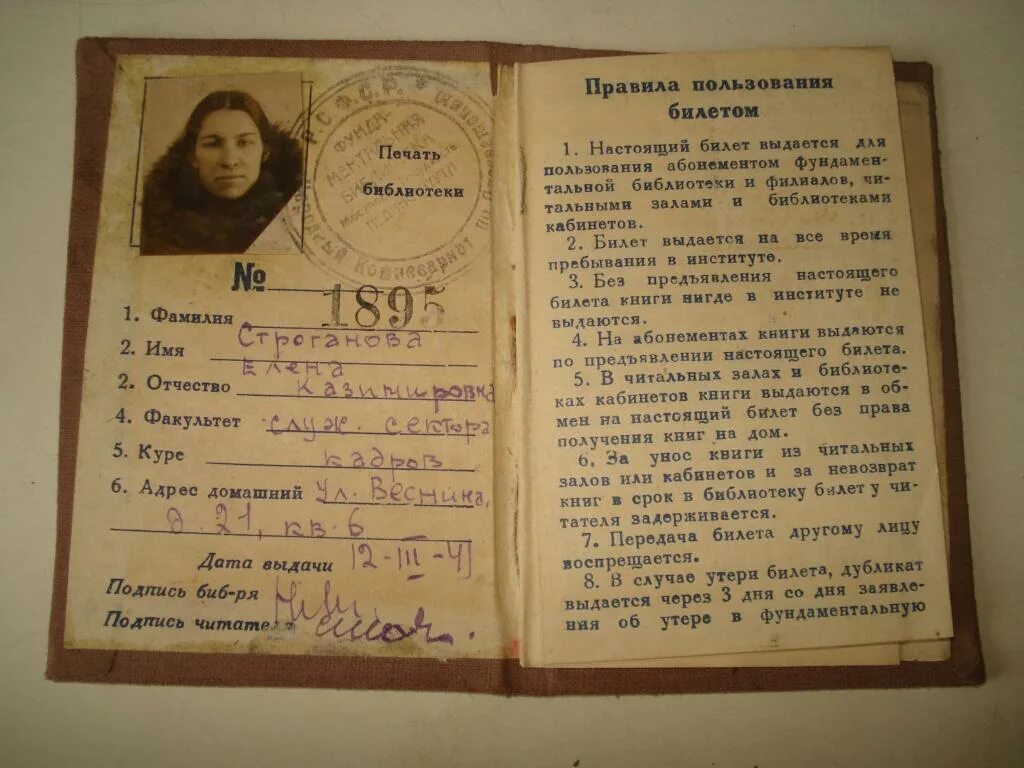 Р.С.Ф.С.Р.
Народный Комиссариат по Просвещению
ФУНДА-
МЕНТАЛЬНАЯ
Печать
библиотеки
№ 1895
1. Фамилия Строганова
2. Имя Елена
2. Отчество Казимировна
4. Факультет служ. сектора
5. Курс кадров
6. Адрес домашний Ул. Веснина,
д. 21, кв. 6
Дата выдачи 12-III-41
Подпись биб-ря
Подпись читателя
Правила пользования
билетом
1. Настоящий билет выдается для
пользования абонементом фундамен-
тальной библиотеки и филиалов, чи-
тальными залами и библиотеками
кабинетов.
2. Билет выдается на все время
пребывания в институте.
3. Без предъявления настоящего
билета книги нигде в институте не
выдаются.
4. На абонементах книги выдаются
по предъявлении настоящего билета.
5. В читальных залах и библиоте-
ках кабинетов книги выдаются в об-
мен на настоящий билет без права
получения книг на дом.
6. За унос книги из читальных
залов или кабинетов и за невозврат
книг в срок в библиотеку билет у чи-
тателя задерживается.
7. Передача билета другому лицу
воспрещается.
8. В случае утери билета, дубликат
выдается через 3 дня со дня заявле-
ния об утере в фундаментальную